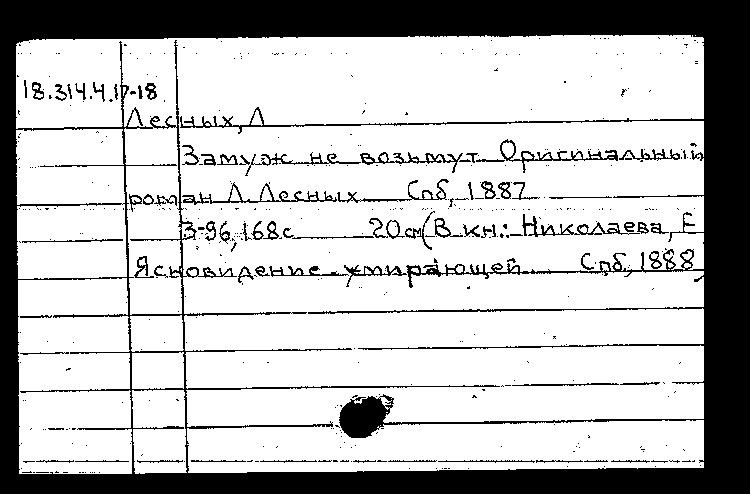 18.314.4.17-18
Лесных, Л
Замуж не возьмут Оригинальный
роман Л. Лесных Спб, 1887
3-96, 168с 20см (В кн.: Николаева, Е
Ясновидение умирающей Спб, 1888